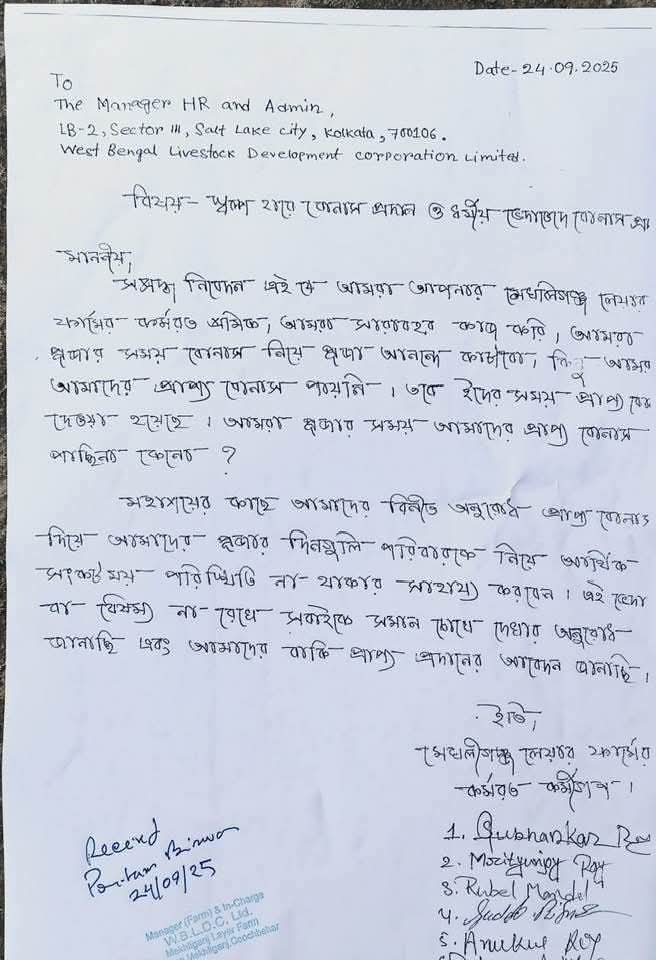 Date- 24.09.2025
To
The Manager HR and Admin,
LB-2, Sector III, Salt Lake city, Kolkata, 700106.
West Bengal Livestock Development corporation Limited.
বিষয়- স্বল্প হারে বোনাস প্রদান ও ধর্মীয় ভেদাভেদে বোনাস প্র
মাননীয়,
সশ্রদ্ধ নিবেদন এই যে আমরা আপনার মেখলিগঞ্জ লেয়ার
ফার্মের কর্মরত শ্রমিক, আমরা সারাবছর কাজ করি, আমরা
পূজার সময় বোনাস নিয়ে পূজা আনন্দে কাটাবো, কিন্তু আমরা
আমাদের প্রাপ্য বোনাস পায়নি। তবে ইদের সময় প্রাপ্য বো
দেওয়া হয়েছে। আমরা পূজার সময় আমাদের প্রাপ্য বোনাস
পাচ্ছিনা কেনো ?
মহাশয়ের কাছে আমাদের বিনীত অনুরোধ প্রাপ্য বোনাস
দিয়ে আমাদের পূজার দিনগুলি পরিবারকে নিয়ে আর্থিক
সংকটময় পরিস্থিতি না থাকার সাহায্য করবেন। এই ভেদা
বা বৈষম্য না রেখে সবাইকে সমান চোখে দেখার অনুরোধ
জানাচ্ছি এবং আমাদের বাকি প্রাপ্য প্রদানের আবেদন জানাচ্ছি।
ইতি,
মেখলীগঞ্জ লেয়ার ফার্মের
কর্মরত কর্মীগণ।
1. Subhankar
2. Mrityunjoy Roy
3. Rubel Mandal
4.
5. Anukul Roy
Received
24/09/25
Manager (Farm) & In-Charga
W.B.L.D.C. Ltd.
Mekhliganj Layer Farm
Mekhliganj, Coochbehar